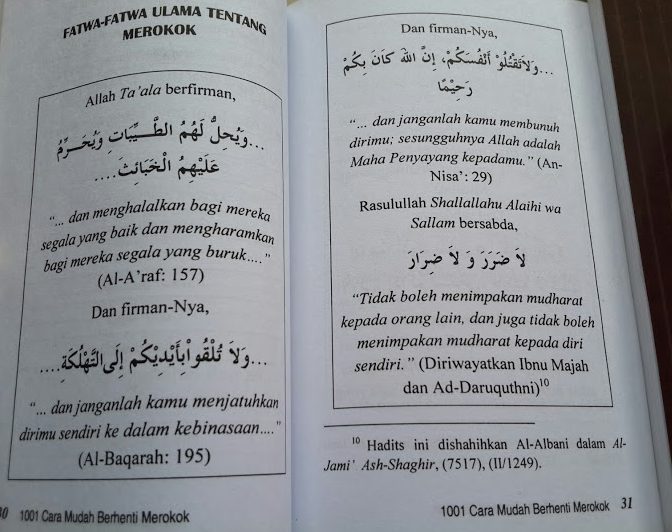 FATWA-FATWA ULAMA TENTANG
MEROKOK
Allah Ta'ala berfirman,
...وَيُحِلُّ لَهُمُ الطَّيِّبَاتِ وَيُحَرِّمُ
عَلَيْهِمُ الْخَبَائِثَ....
"... dan menghalalkan bagi mereka
segala yang baik dan mengharamkan
bagi mereka segala yang buruk...."
(Al-A'raf: 157)
Dan firman-Nya,
...وَلاَ تُلْقُوا بِأَيْدِيْكُمْ إِلَى التَّهْلُكَةِ....
"... dan janganlah kamu menjatuhkan
dirimu sendiri ke dalam kebinasaan...."
(Al-Baqarah: 195)
30 1001 Cara Mudah Berhenti Merokok
Dan firman-Nya,
...وَلاَتَقْتُلُوْ أَنْفُسَكُمْ، إِنَّ اللهَ كَانَ بِكُمْ
رَحِيْمًا
"... dan janganlah kamu membunuh
dirimu; sesungguhnya Allah adalah
Maha Penyayang kepadamu." (An-
Nisa': 29)
Rasulullah Shallallahu Alaihi wa
Sallam bersabda,
لاَ ضَرَرَ وَ لاَ ضِرَارَ
"Tidak boleh menimpakan mudharat
kepada orang lain, dan juga tidak boleh
menimpakan mudharat kepada diri
sendiri." (Diriwayatkan Ibnu Majah
dan Ad-Daruquthni)10
10 Hadits ini dishahihkan Al-Albani dalam Al-
Jami' Ash-Shaghir, (7517), (II/1249).
1001 Cara Mudah Berhenti Merokok 31